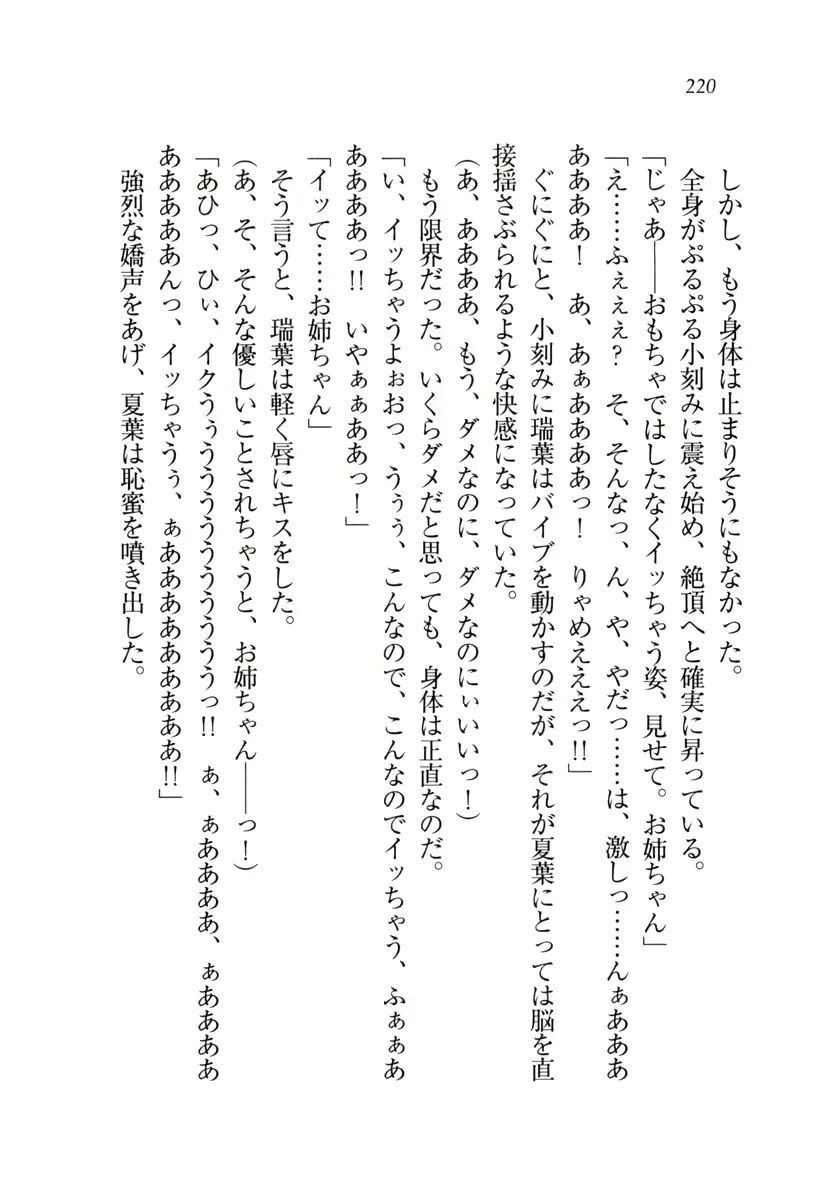 220
しかし、もう身体は止まりそうにもなかった。
全身がぷるぷる小刻みに震え始め、絶頂へと確実に昇っている。
「じゃあ――おもちゃではしたなくイッちゃう姿、見せて。お姉ちゃん」
「え……ふぇぇぇ？　そ、そんなっ、ん、や、やだっ……は、激しっ……んぁあああ
ああああ！　あ、あぁああああっ！　りゃめえええっ!!」
ぐにぐにと、小刻みに瑞葉はバイブを動かすのだが、それが夏葉にとっては脳を直
接揺さぶられるような快感になっていた。
（あ、ああああ、もう、ダメなのに、ダメなのにぃいいっ！）
もう限界だった。いくらダメだと思っても、身体は正直なのだ。
「い、イッちゃうよぉおっ、うぅぅ、こんなので、こんなのでイッちゃう、ふぁぁあ
ああああっ!!　いやぁぁああっ！」
「イッて……お姉ちゃん」
そう言うと、瑞葉は軽く唇にキスをした。
（あ、そ、そんな優しいことされちゃうと、お姉ちゃん――っ！）
「あひっ、ひぃ、イクうぅうううううううううっ!!　ぁ、ぁああああ、ぁあああああ
ああああああんっ、イッちゃうぅ、ぁああああああああああ!!」
強烈な嬌声をあげ、夏葉は恥蜜を噴き出した。